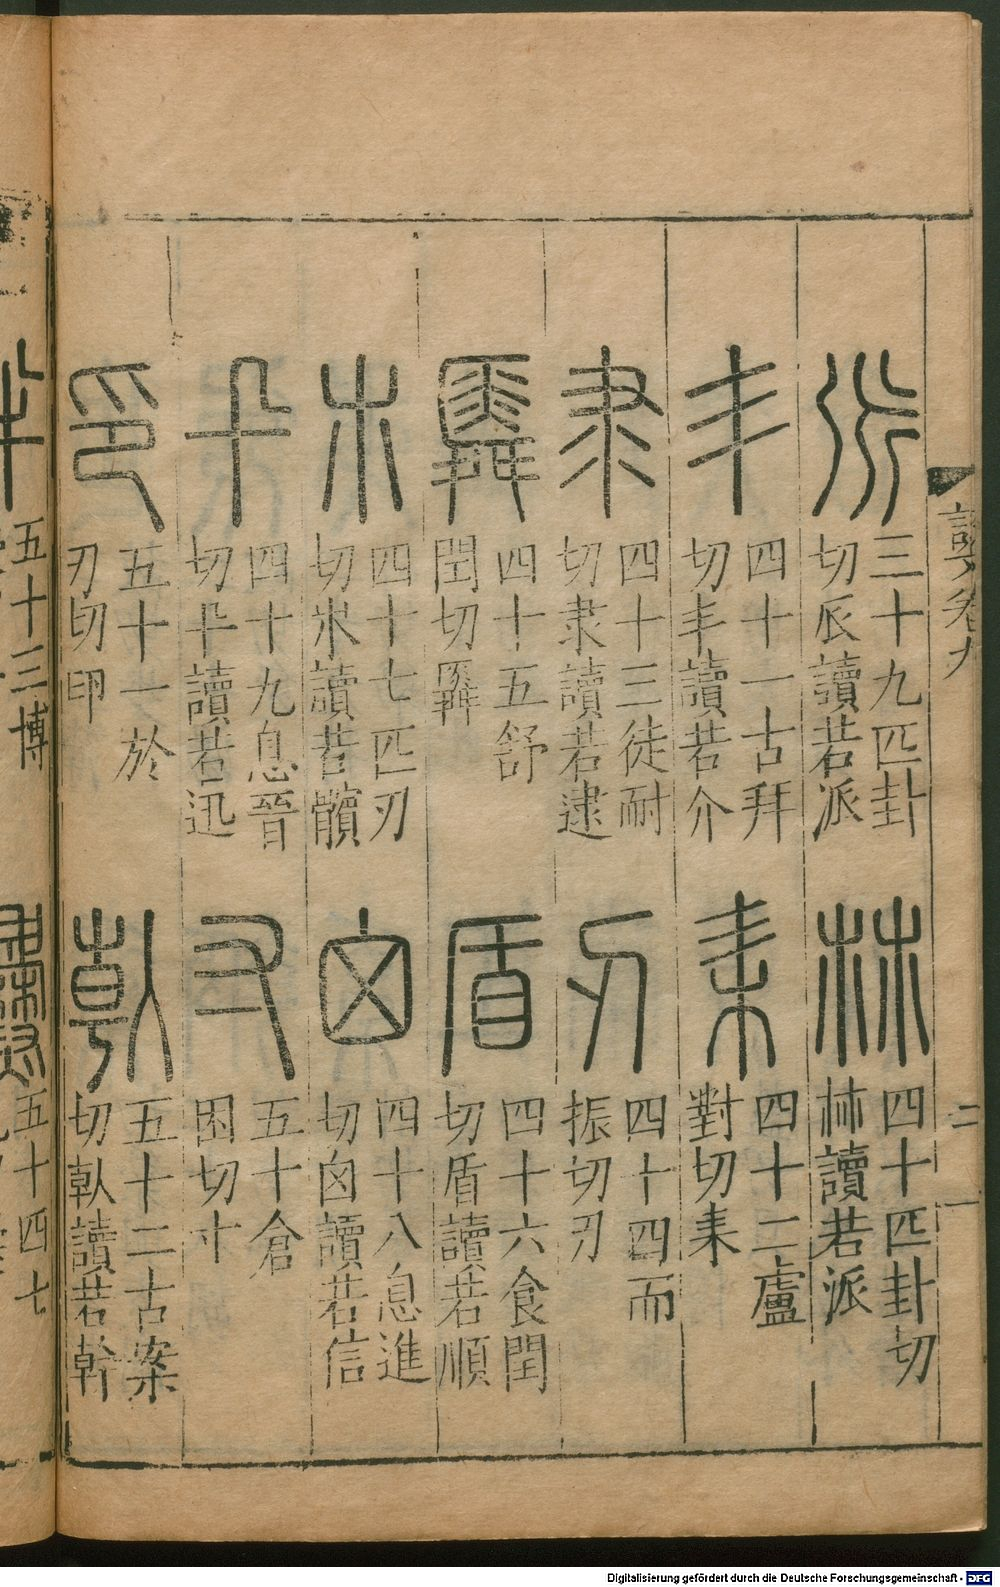 𠂢
三十九匹卦
切𠂢讀若派
𣏟
四十匹卦切
𣏟讀若派
丰
四十一古拜
切丰讀若介
耒
四十二盧
對切耒
隶
四十三徒耐
切隶讀若逮
刃
四十四而
振切刃
四十五舒
閏切
盾
四十六食閏
切盾讀若順
𣎳
四十七匹刃
切𣎳讀若髕
囟
四十八息進
切囟讀若信
卂
四十九息晉
切卂讀若迅
寸
五十倉
困切寸
印
五十一於
刃切印
倝
五十二古案
切倝讀若幹
五十三博
五十四七
卷九
二
Digitalisierung gefördert durch die Deutsche Forschungsgemeinschaft - DFG